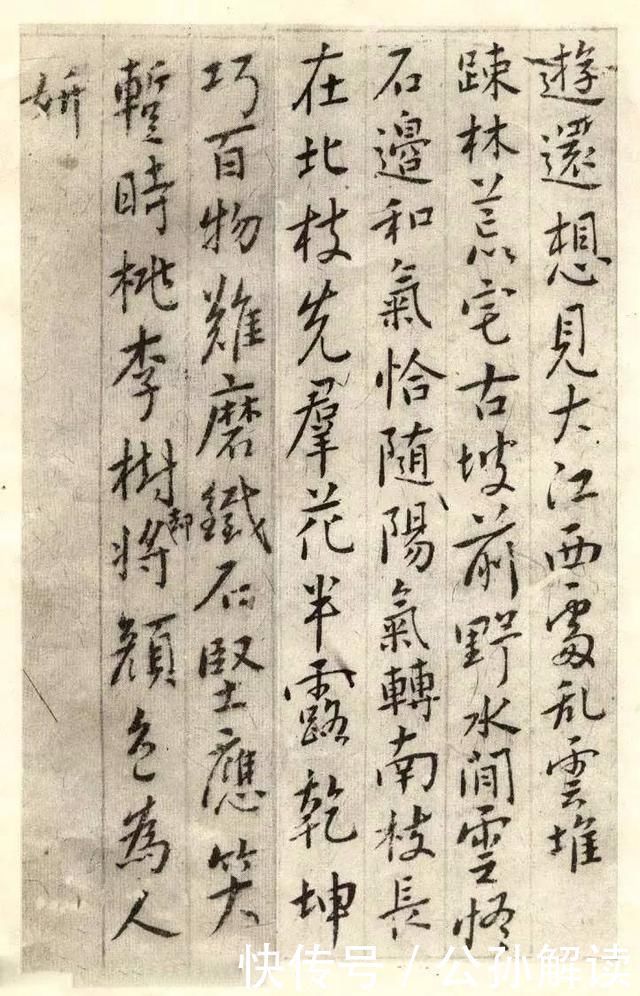 遊還想見大江西處乱雲堆
踈林荒宅古坡前野水閒雲怪
石邉和氣恰隨陽氣轉南枝長
在北枝先羣花半露乾坤
巧百物難磨鐵石堅應笑
暫時桃李樹將顔色為人
却
妍
快传号／公孙解读